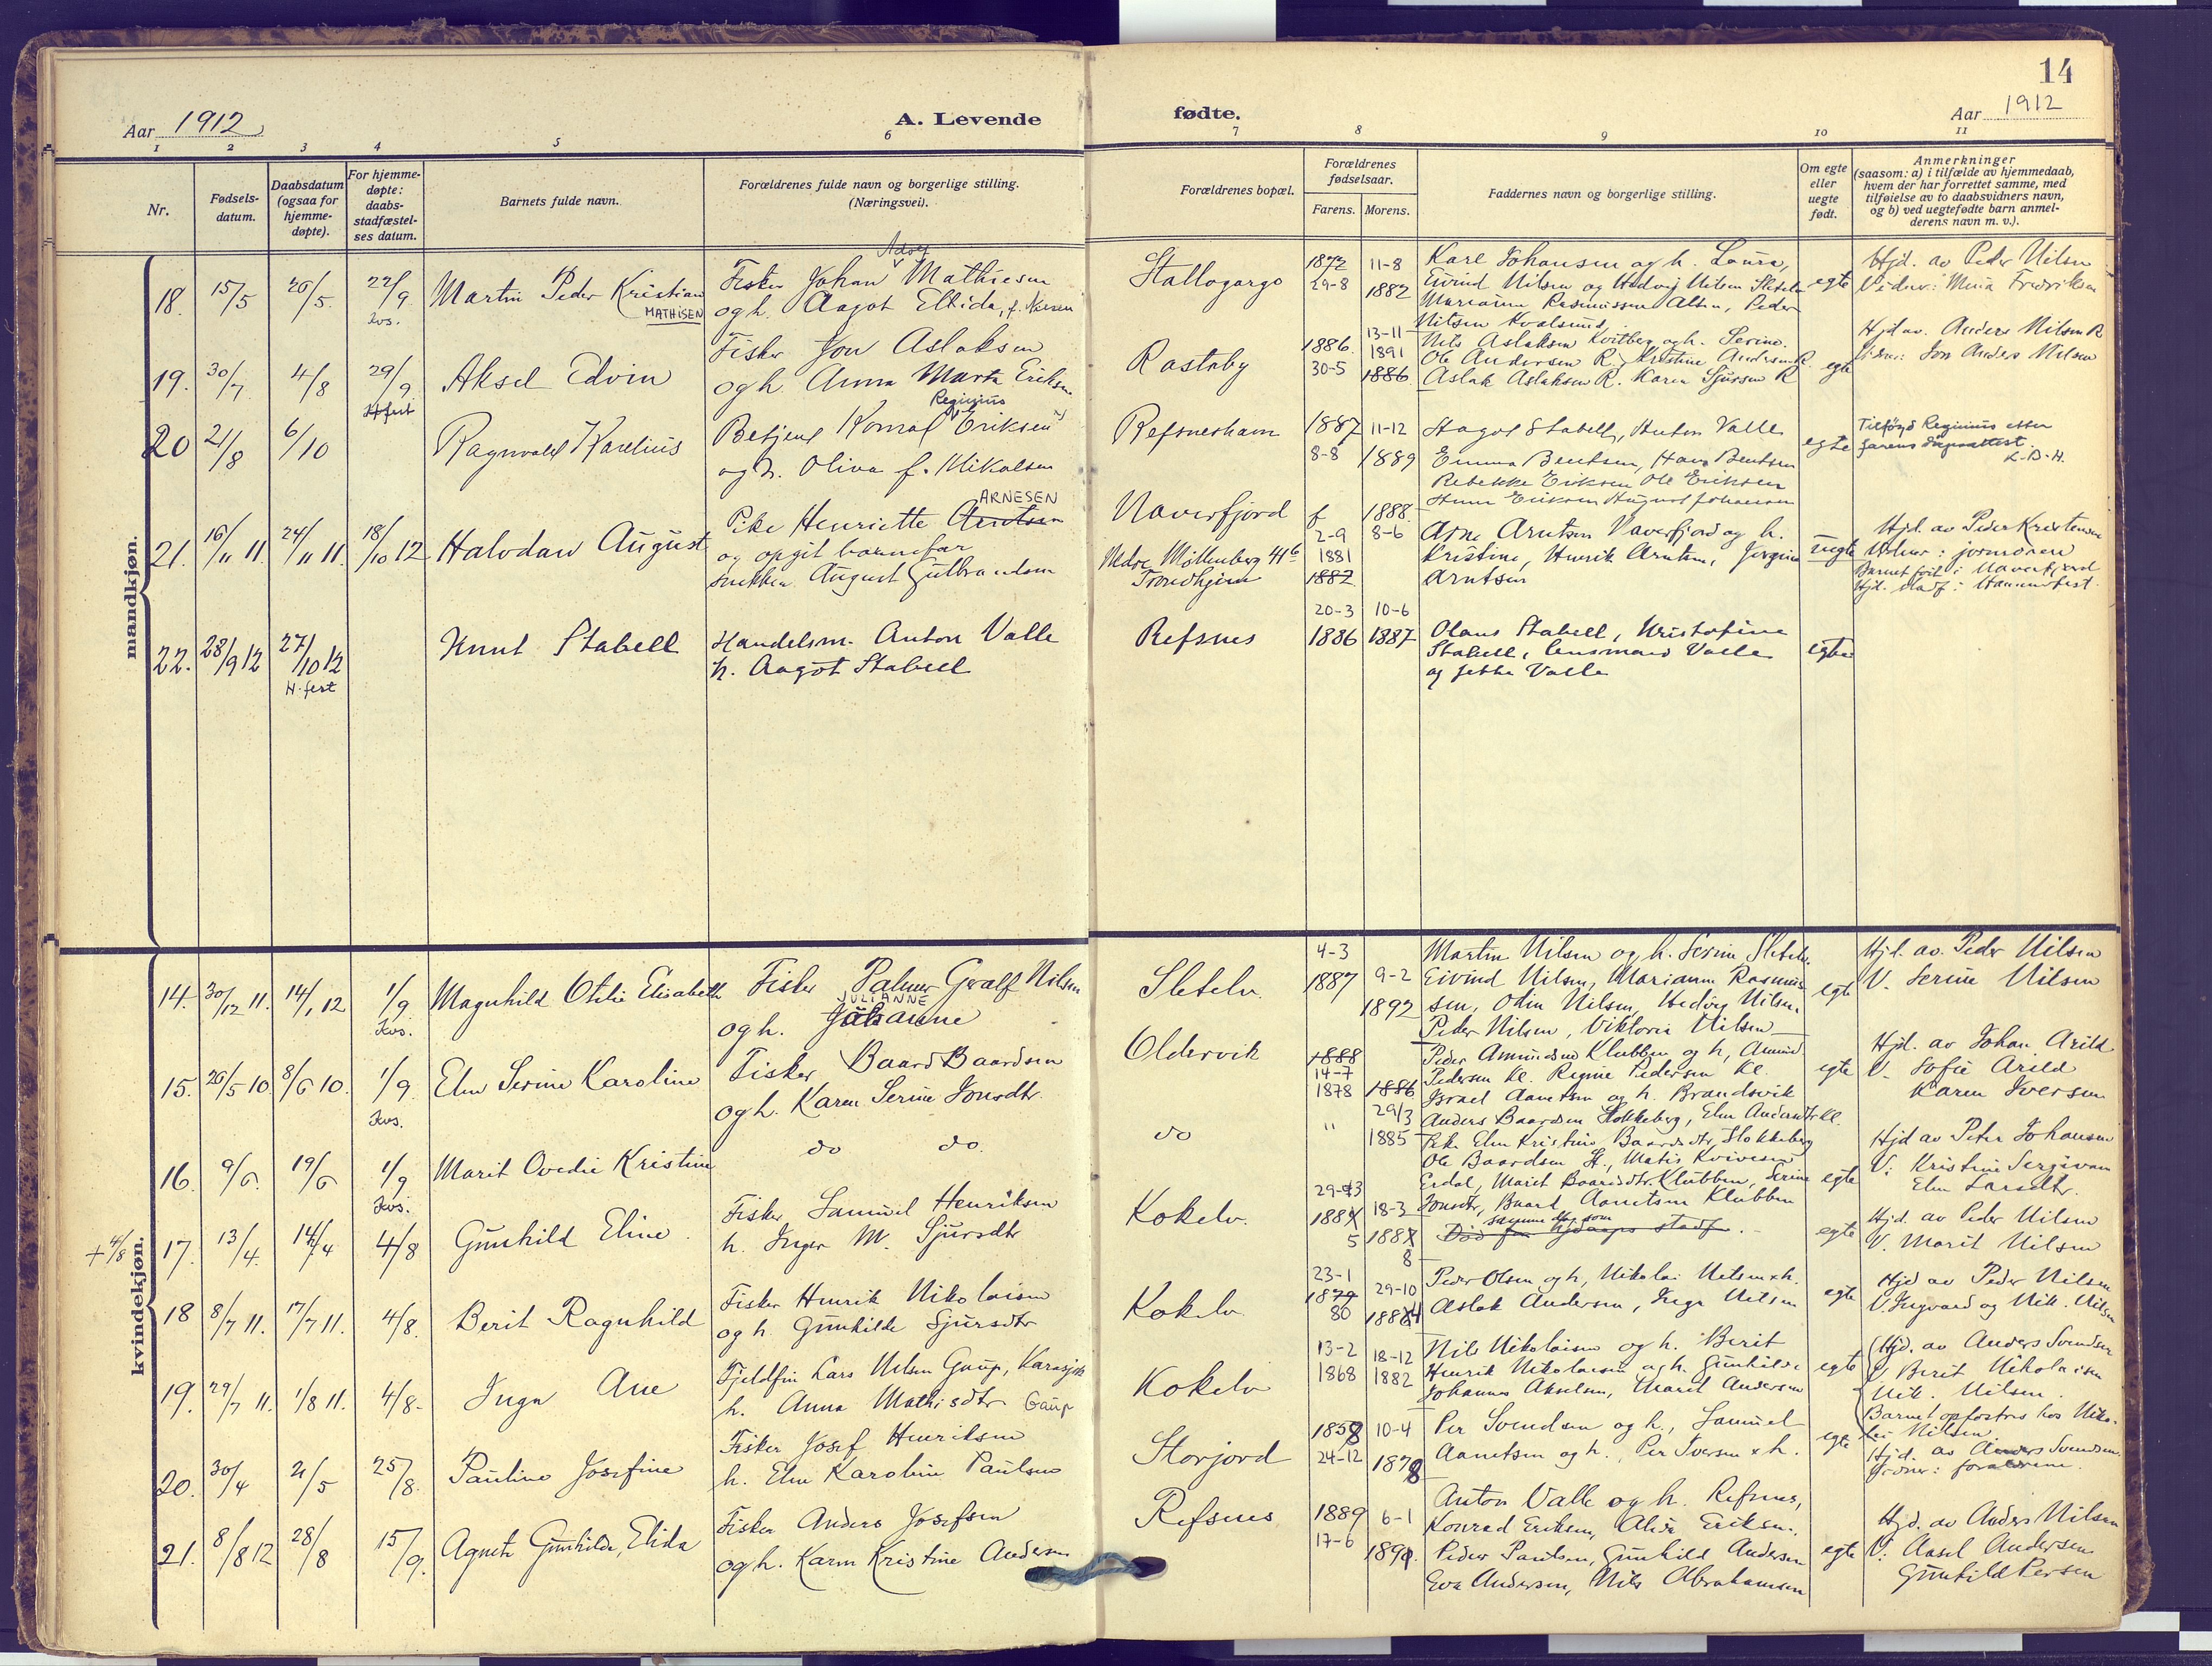 14
Aar 1912
A. Levende
fødte.
Aar 1912
1 2 3 4 5 6 7 8 9 10 11
Nr.
Fødsels-
datum.
Daabsdatum
(ogsaa for
hjemme-
døpte).
For hjemme-
døpte:
daabs-
stadfæstel-
ses datum.
Barnets fulde navn.
Forældrenes fulde navn og borgerlige stilling.
(Næringsvei).
Forældrenes bopæl.
Forældrenes
fødselsaar.
Farens. Morens.
Faddernes navn og borgerlige stilling.
Om egte
eller
uegte
født.
Anmerkninger
(saasom: a) i tilfælde av hjemmedaab,
hvem der har forrettet samme, med
tilføielse av to daabsvidners navn,
og b) ved uegtefødte barn anmel-
derens navn m. v.).
mandkjøn.
18. 15/5 26/5 22/9 Kvs.
Martin Peder Kristian
MATHISEN
Adolf
Fisker Johan Mathiesen
og h. Aagot Elkida,
Stallogargo
1872 11-8
29-8 1882
Karl Johansen og h. Laura,
Eivind Nilsen og Hedvig Nilsen
Marianne Rasmussen Peder
Nilsen Kvalsund,
egte
Hjd. av Peder Nilsen
Fredriksen
19. 30/7 4/8 29/9
H.fest
Aksel Edvin
Fisker Jon Aslaksen
og h. Anna Marta Eriksen
Rastaby
1886 13-11 1891
30-5 1886
Nils Aslaksen Kvitberg og h. Serine.
Ole Andersen R. Kristine Andersen R.
Aslak Aslaksen R. Karen Sjursen R
egte
Hjd av. Anders Nilsen R
Jon Anders Nilsen
20 21/8 6/10
Ragnvald Karelius
Reginius
Betjent Konrad Eriksen
og h. Oliva f. Mikalsen
Refsneshamn
1887 11-12
8-8 1889
Aagot Stabell, Anton Valle
Emma Bentsen, Hans Bentsen
Rebekke Eriksen Ole Eriksen
Eriksen August Johansen
egte
Tilføyd Reginius etter
farens dåpsattest.
L.B.H.
21. 16/11 11. 24/11 11. 18/10 12
Halvdan August
ARNESEN
Pike Henriette Arntsen
og opgit barnefar
snekker August Gulbrandsen
Naverfjord
Nedre Möllenberg 41b
Trondhjem
f 1888
2-9 8-6
1881
1882
Arne Arntsen Naverfjord og h.
Kristine, Henrik Arntsen, Jørgine
Arntsen
uegte
Hjd. av Peder Kristensen
jormoren
Barnet født i Naverfjord
Hjd. stadf. i Hammerfest.
22. 28/9 12 27/10 12
H.fest
Knut Stabell
Handelsm. Anton Valle
h. Aagot Stabell
Refsnes
20-3 10-6
1886 1887
Olaus Stabell, Kristofine
Stabell, lensmand Valle
og Valle
egte
kvindekjøn.
14. 30/12 11. 14/1 12 1/9 Kvs.
Magnhild Otelie Elisabeth
Fisker Palmer Gvalf Nilsen
JULIANNE
og h. Johanne
Sletelv.
4-3
1887 9-2
1892
Martin Nilsen og h. Serine Sletelv.
Eivind Nilsen, Marianne Rasmus
sen, Odin Nilsen, Hedvig Nilsen
Peder Nilsen, Viktoria Nilsen
egte
Hjd. av Peder Nilsen
V. Serine Nilsen
15. 26/5 10. 8/6 10. 1/9 Kvs.
Elen Serine Karoline
Fisker Baard Baardsen
og h. Karen Serine Jonsdtr.
Oldervik
1888
14-7
1878 1886
29/3
Peder Amundsen Klubben og h, Amund
Pedersen Kl. Regine Pedersen Kl.
Israel Aanetsen og h. Brandsvik
Anders Baardsen Stokkeberg, Elen Andersdtr Kl.
egte
Hjd. av Johan Arild
V. Sofie Arild
Karen Iversen
16. 9/6. 19/6 1/9 Kvs.
Marit Ovedie Kristine
do do.
do
" 1885
Pike Elen Kristine Baardsdtr. Stokkeberg
Ole Baardsen St., Matis
Erdal, Marit Baardsdtr. Klubben, Serine
Jonsdtr, Baard Aanetsen Klubben
egte
Hjd av Peter Johansen
V: Kristine
Elen Larsdtr.
+ 4/8
17. 13/4. 14/4 4/8
Gunhild Eline
Fisker Samuel Henriksen
h. Inger M. Sjursdtr
Kokelv.
29-3
1884 18-3
5 1887
8
samme dag som
Død før hjdaaps stadf.
egte
Hjd. av Peder Nilsen
V. Marit Nilsen
18 8/7 11. 17/7 11. 4/8.
Berit Ragnhild
Fisker Henrik Nikolaisen
og h. Gunhilde Sjursdtr
Kokelv.
23-1
1879 29-10
80 1884
Peder Olsen og h, Nikolai Nilsen x h.
Aslak Andersen, Inga Nilsen
egte
Hjd av Peder Nilsen
V. Ingvard og Nik. Nilsen
19. 29/7 11. 1/8 11. 4/8.
Inga Ane
Fjeldfin Lars Nilsen Gaup, Karasjok
h. Anna Mathisdtr. Gaup
Kokelv
13-2 18-12
1868 1882
Nils Nikolaisen og h. Berit
Henrik Nikolaisen og h. Gunhilde
Johannes Akselsen, Marit Andersen
egte
Hjd. av Anders Svendsen
V. Berit Nikolaisen
Nik. Nilsen.
Barnet opfostres hos Niko-
lai Nilsen
20. 30/4 21/5 25/8.
Pauline Josefine
Fisker Josef Henriksen
h. Elen Karoline Paulsen
Storjord
1858 10-4
24-12 1878
Per Svendsen og h., Samuel
Aanetsen og h., Per Iversen x h.
egte
Hjd. av Anders Svendsen
forældrene.
21. 8/8 12 28/8 15/9.
Agnete Gunhilde, Elida
Fisker Anders Josefsen
og h. Karen Kristine Andersen
Refsnes
1889 6-1
17-6 1890.
Anton Valle og h. Refsnes,
Konrad Eriksen, Eriksen.
Peder Paulsen, Gunhild Andersen
Eva Andersen, Nils Abrahamsen
egte
Hjd. av Anders Nilsen
V: Aasel Andersen
Gunhild Persen